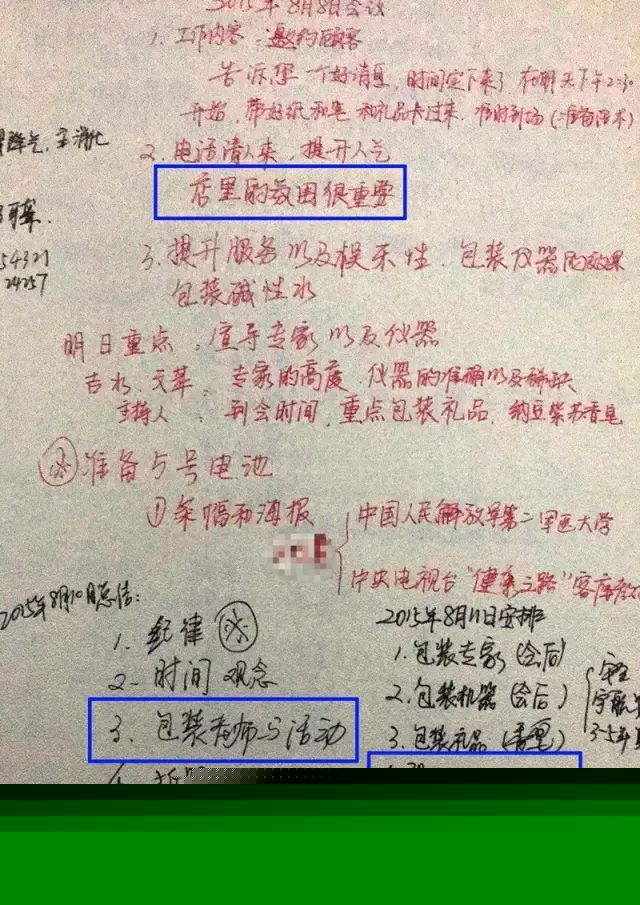 2015年8月8日会议
1. 工作内容：邀约顾客
告诉您一个好消息，时间定下来了 在明天下午2:30
开始，带好纸和笔 和礼品卡过来，准时到场（准备用术）
2. 电话请人来，提升人气
店里的氛围很重要
王淑
54321
24257
3. 提升服务以及娱乐性，包装仪器的效果
包装碱性水
明日重点：宣导专家以及仪器
专家的高度，仪器的准确以及稀缺
主持人：到会时间，重点包装礼品，纳豆 香皂
准备5号电池
①条幅和海报
中国人民解放军第二军医大学
中央电视台"健康之路"客座
2015年8月10日总结：
1. 纪律
2. 时间观念
3. 包装老师与活动
2015年8月11日安排
1. 包装专家（会后）
2. 包装机器（会后）
3. 包装礼品
3-5年